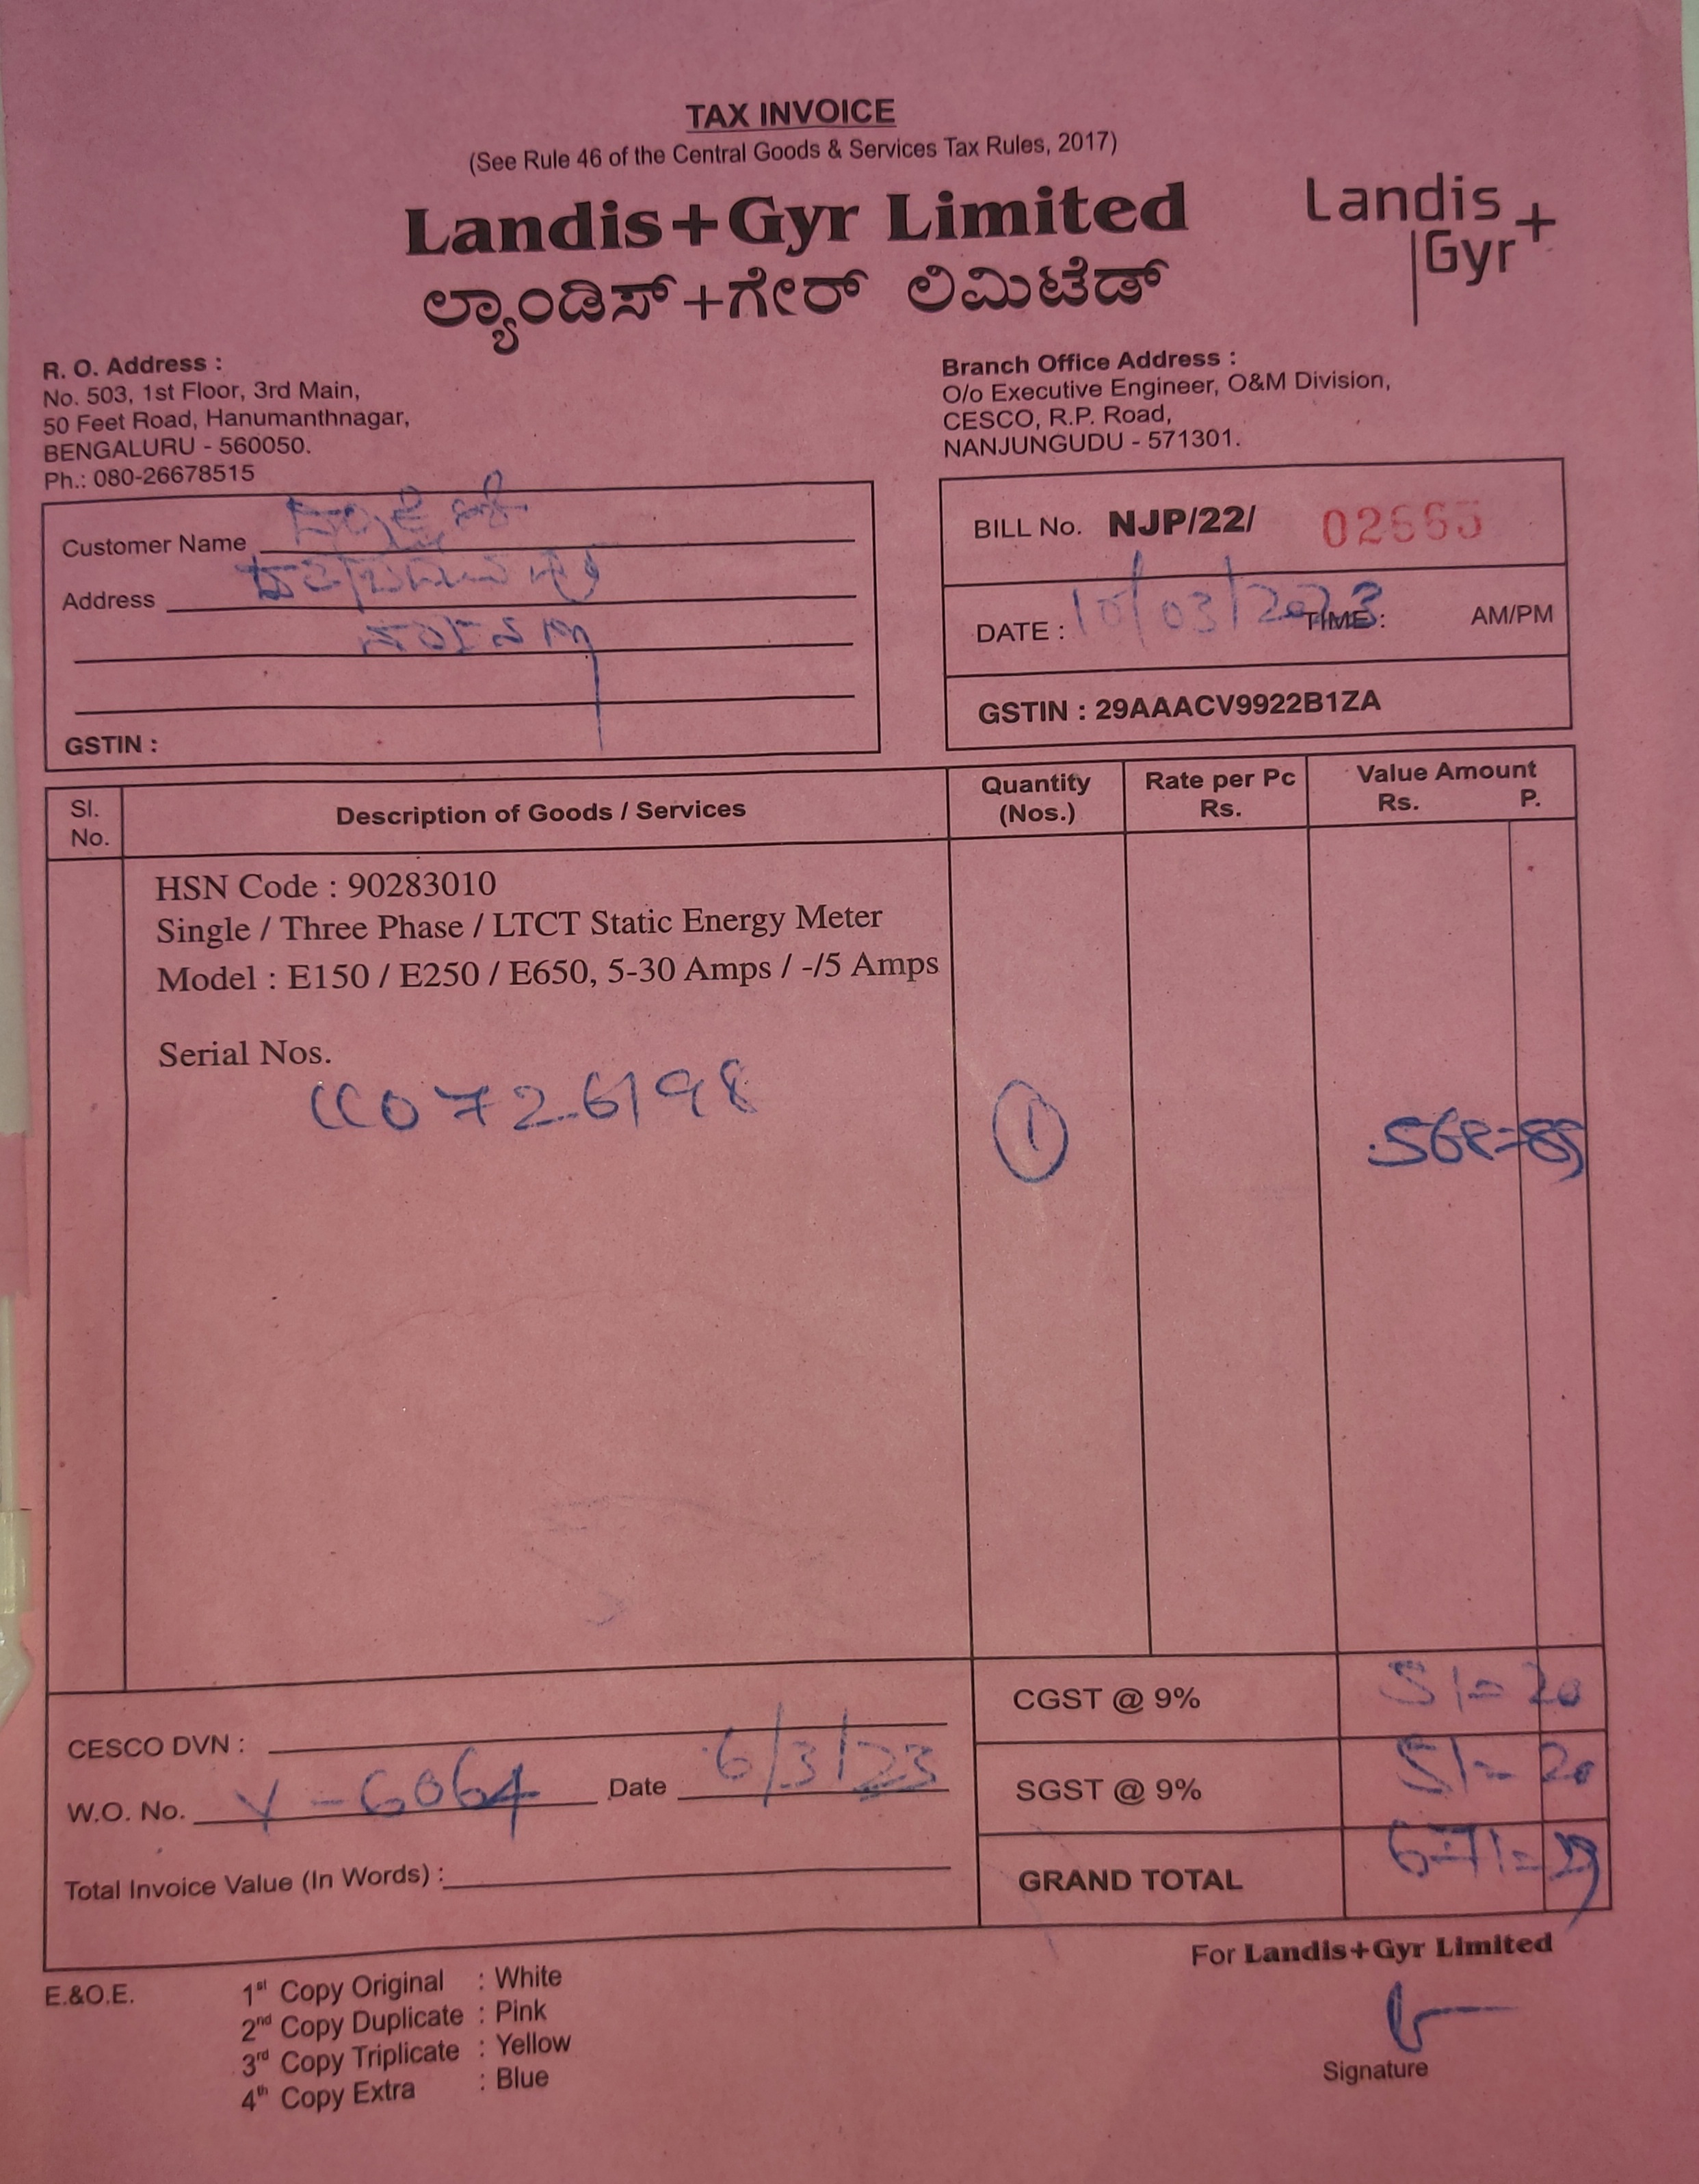 TAX INVOICE
(See Rule 46 of the Central Goods & Services Tax Rules, 2017)
Landis+Gyr Limited
ಲ್ಯಾಂಡಿಸ್+ಗೇರ್ ಲಿಮಿಟೆಡ್
Landis
Gyr+
R. O. Address :
No. 503, 1st Floor, 3rd Main,
50 Feet Road, Hanumanthnagar,
BENGALURU - 560050.
Ph.: 080-26678515
Branch Office Address :
O/o Executive Engineer, O&M Division,
CESCO, R.P. Road,
NANJUNGUDU - 571301.
Customer Name
Address
GSTIN :
BILL No. NJP/22/ 02665
DATE : 10/03/2023 TIME : AM/PM
GSTIN : 29AAACV9922B1ZA
Sl. No. Description of Goods / Services Quantity (Nos.) Rate per Pc Rs. Value Amount Rs. P.
HSN Code : 90283010
Single / Three Phase / LTCT Static Energy Meter
Model : E150 / E250 / E650, 5-30 Amps / -/5 Amps
Serial Nos.
CC0726198 1 568=89
CGST @ 9% 51=20
SGST @ 9% 51=20
GRAND TOTAL 671=29
CESCO DVN :
W.O. No. Y-6064 Date 6/3/23
Total Invoice Value (In Words) :
For Landis+Gyr Limited
E.&O.E.
1st Copy Original : White
2nd Copy Duplicate : Pink
3rd Copy Triplicate : Yellow
4th Copy Extra : Blue
Signature